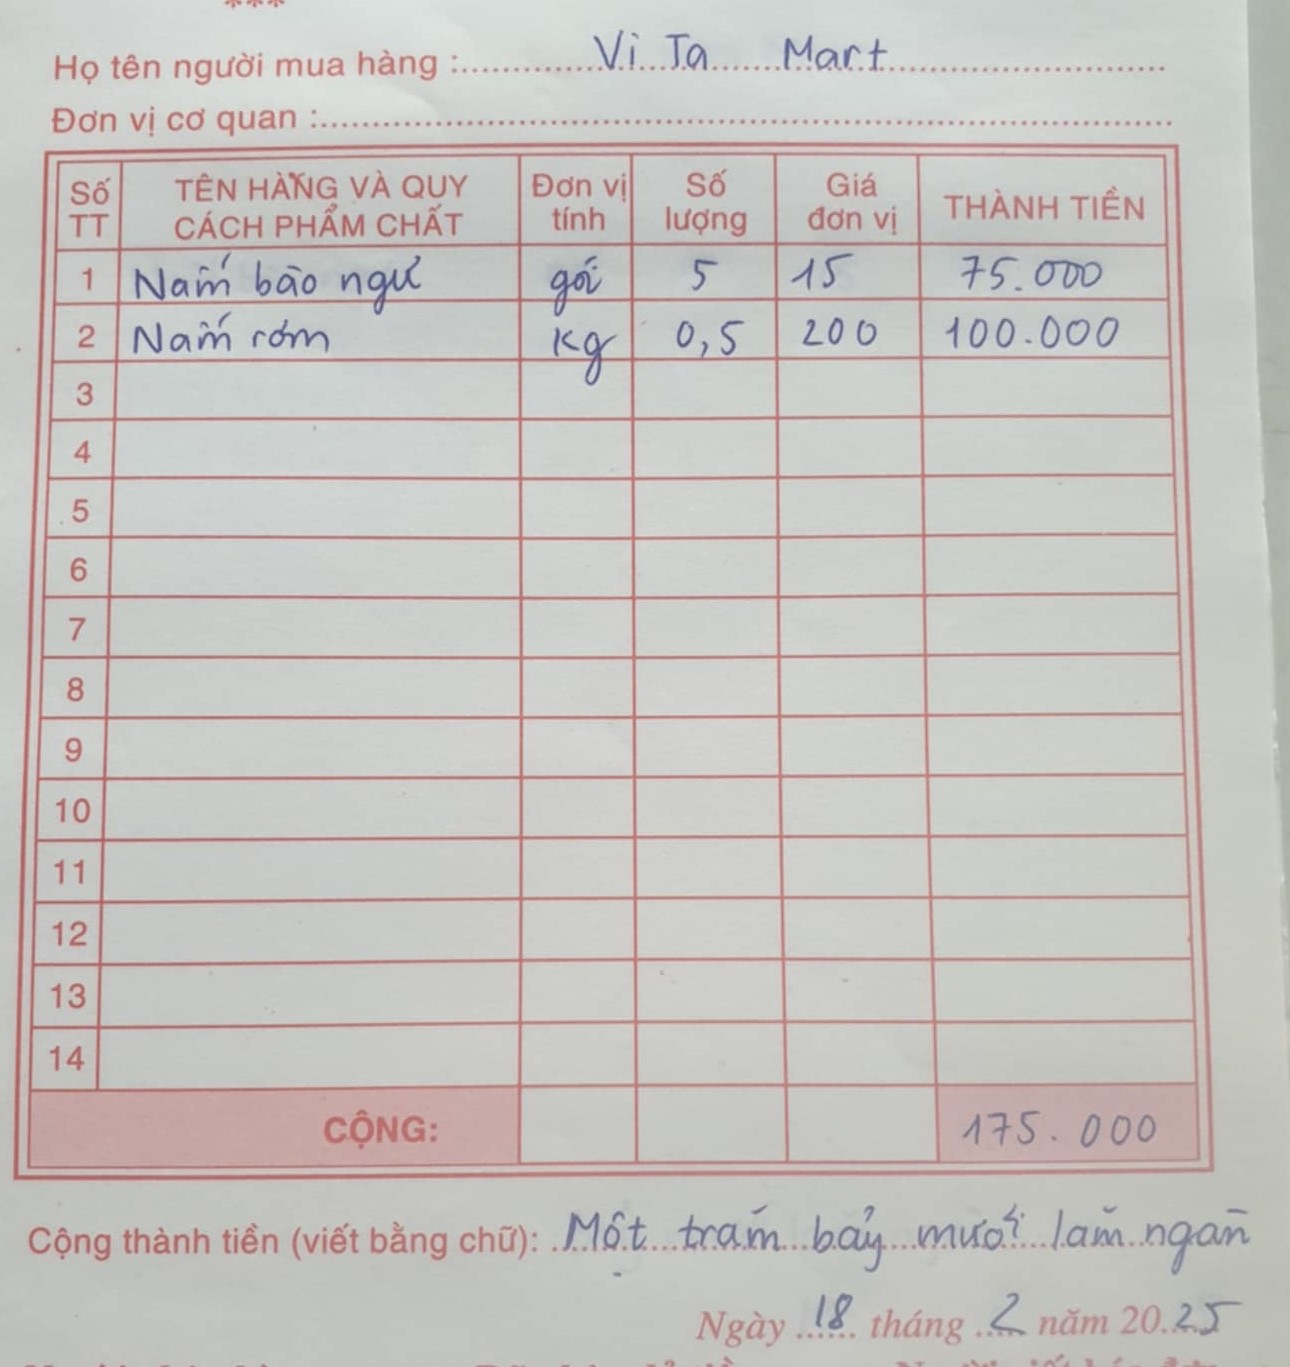 ***
Họ tên người mua hàng : Vi Ta Mart
Đơn vị cơ quan :
Số TT TÊN HÀNG VÀ QUY CÁCH PHẨM CHẤT Đơn vị tính Số lượng Giá đơn vị THÀNH TIỀN
1 Nấm bào ngư gói 5 15 75.000
2 Nấm rơm kg 0,5 200 100.000
3
4
5
6
7
8
9
10
11
12
13
14
CỘNG: 175.000
Cộng thành tiền (viết bằng chữ): Một trăm bảy mươi lăm ngàn
Ngày 18 tháng 2 năm 2025